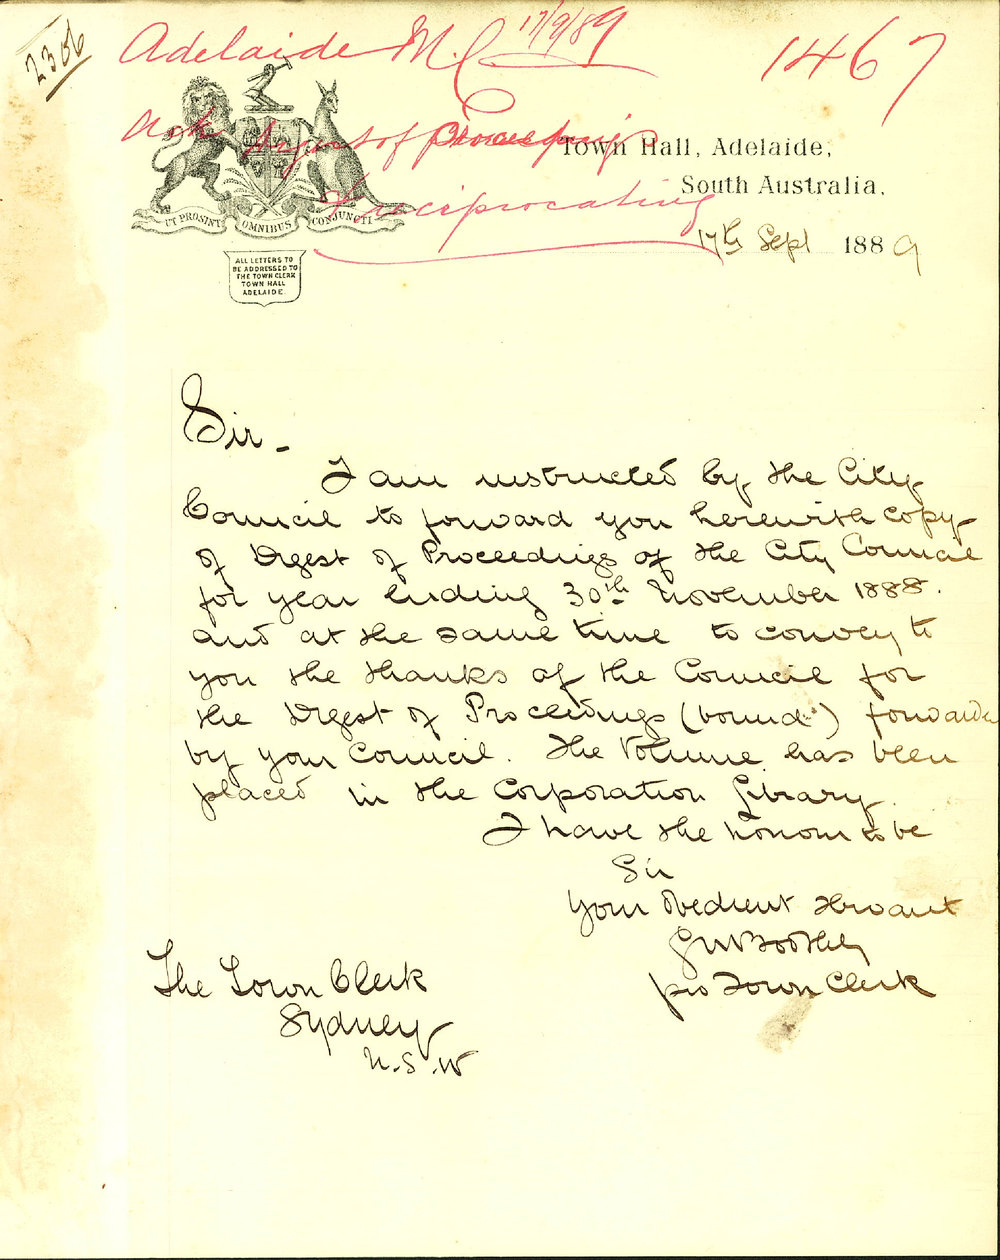 2306
Adelaide M.C. 17/9/89
1467
Digest of Proceedings
reciprocating
UT PROSINT OMNIBUS CONJUNCTI
ALL LETTERS TO
BE ADDRESSED TO
THE TOWN CLERK
TOWN HALL
ADELAIDE.
Town Hall, Adelaide,
South Australia,
17th Sept 1889
Sir -
I am instructed by the City
Council to forward you herewith copy
of Digest of Proceedings of the City Council
for year ending 30th November 1888.
and at the same time to convey to
you the thanks of the Council for
the Digest of Proceedings (bound) forwarded
by your Council. The Volume has been
placed in the Corporation Library.
I have the honour to be
Sir
Your Obedient Servant
pro Town Clerk
The Town Clerk
Sydney
N.S.W